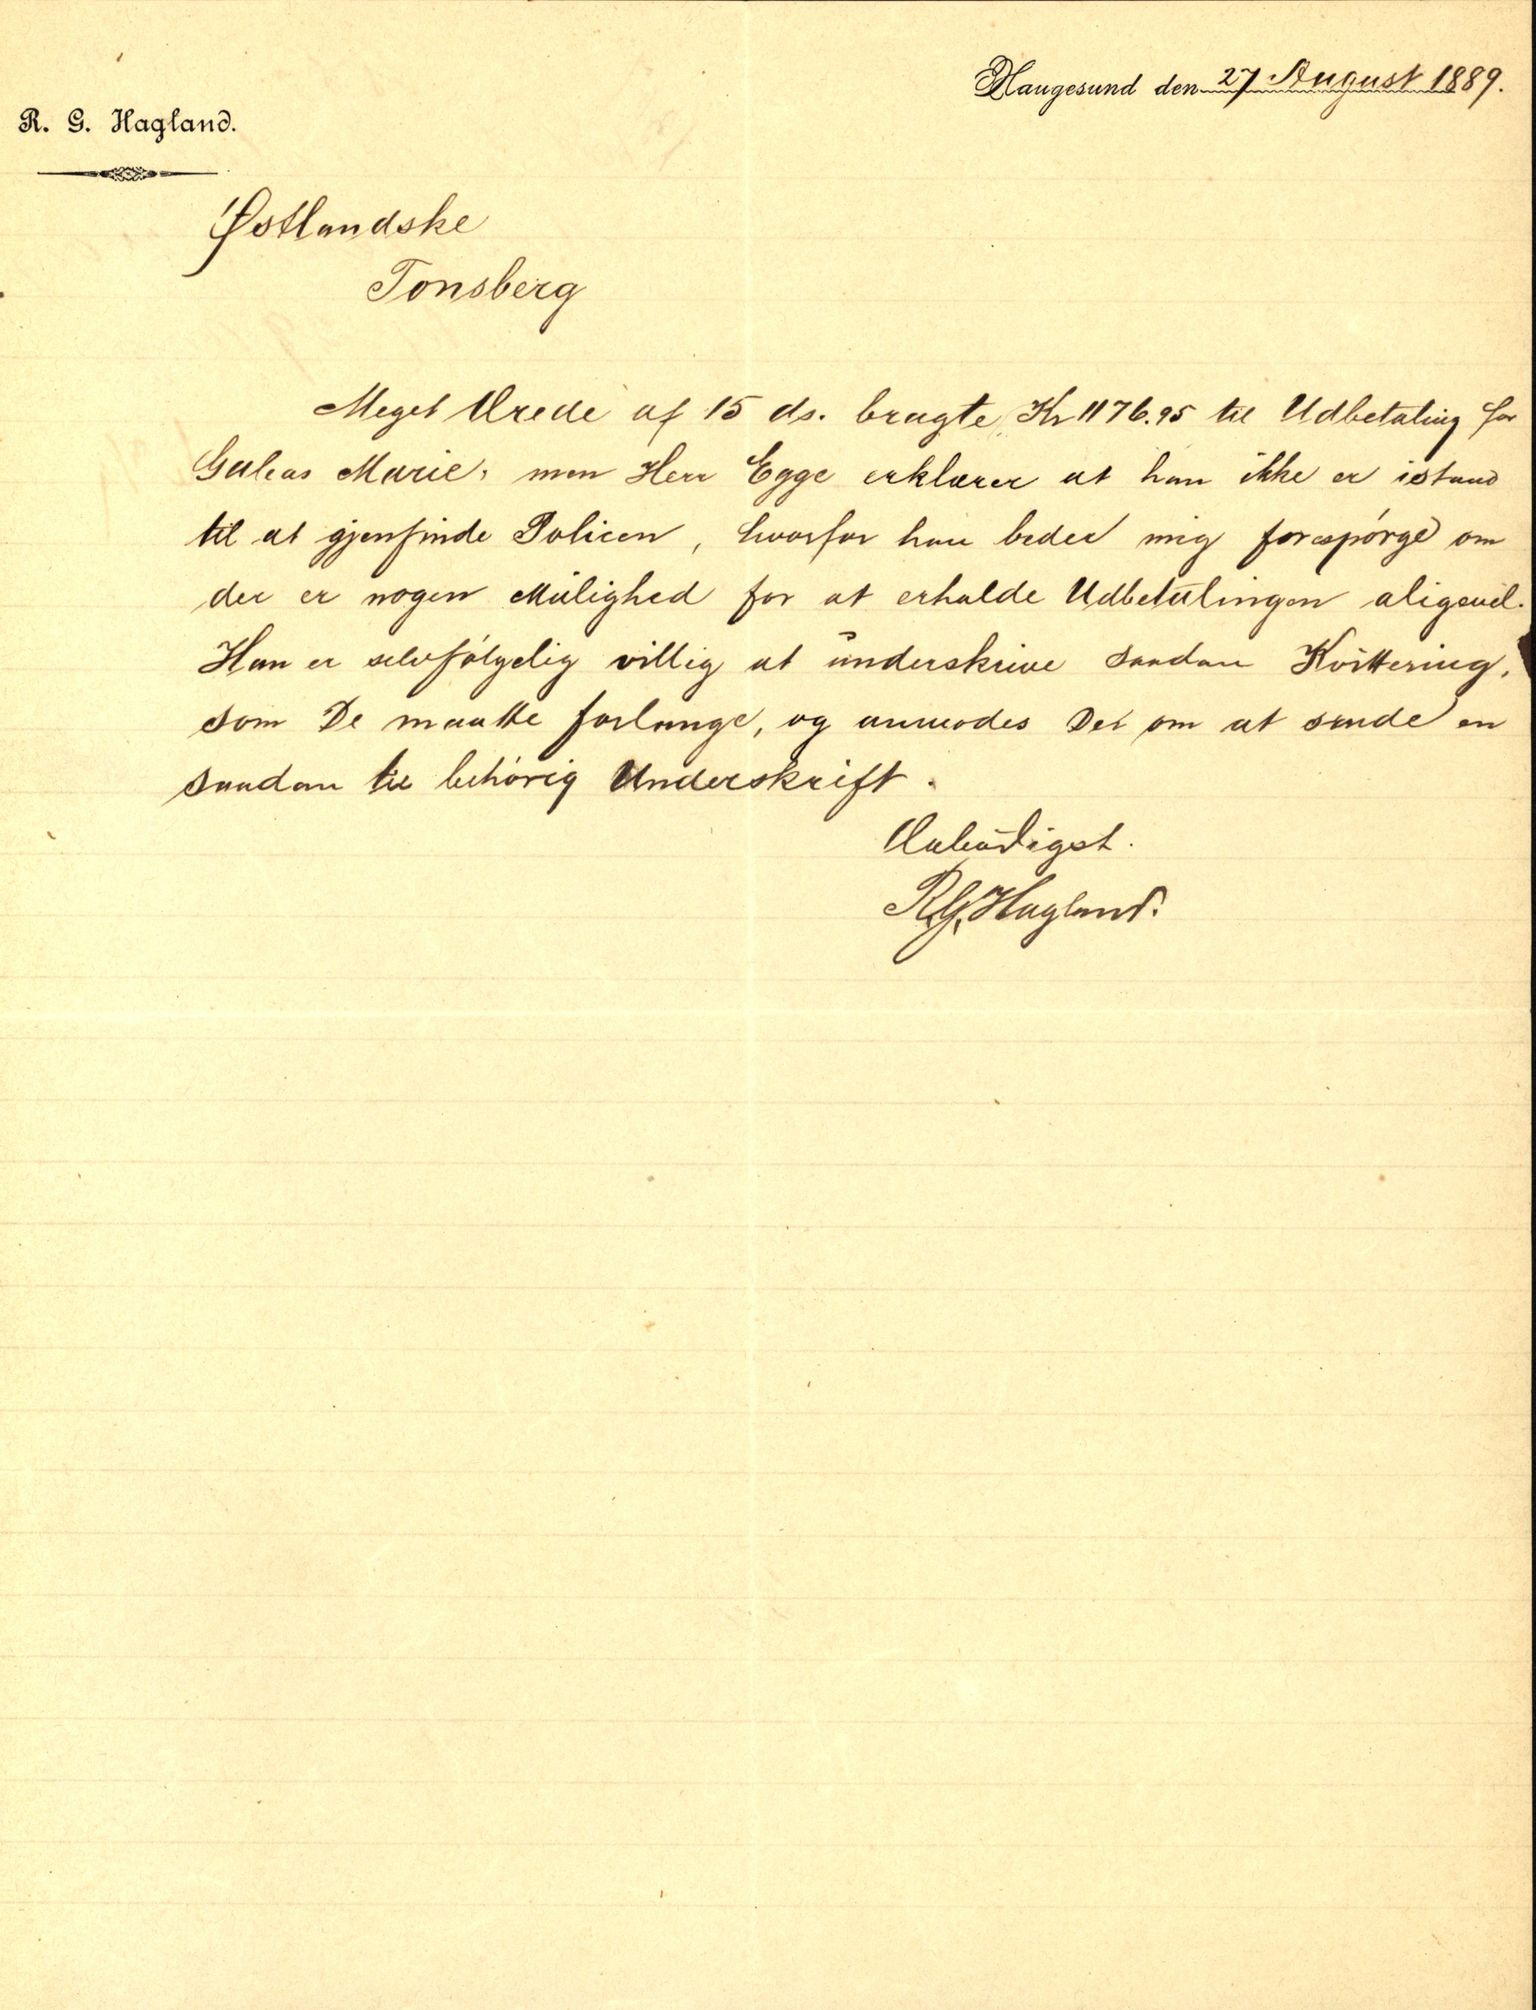 Haugesund den 27 August 1889.
R. G. Hagland.
Østlandske
Tønsberg
Meget Ærede af 15 ds. bragte Kr 1176.95 til Udbetaling for
Galeas Marie, men Herr Egge erklærer at han ikke er istand
til at gjenfinde Policen, hvorfor han beder mig forespørge om
der er nogen Mulighed for at erholde Udbetalingen aligevel.
Han er selvfølgelig villig at underskrive saadan Kvittering,
som De maatte forlange, og anmodes De om at sende en
saadan til behørig Underskrift.
Ærbødigst.
R.G. Hagland.